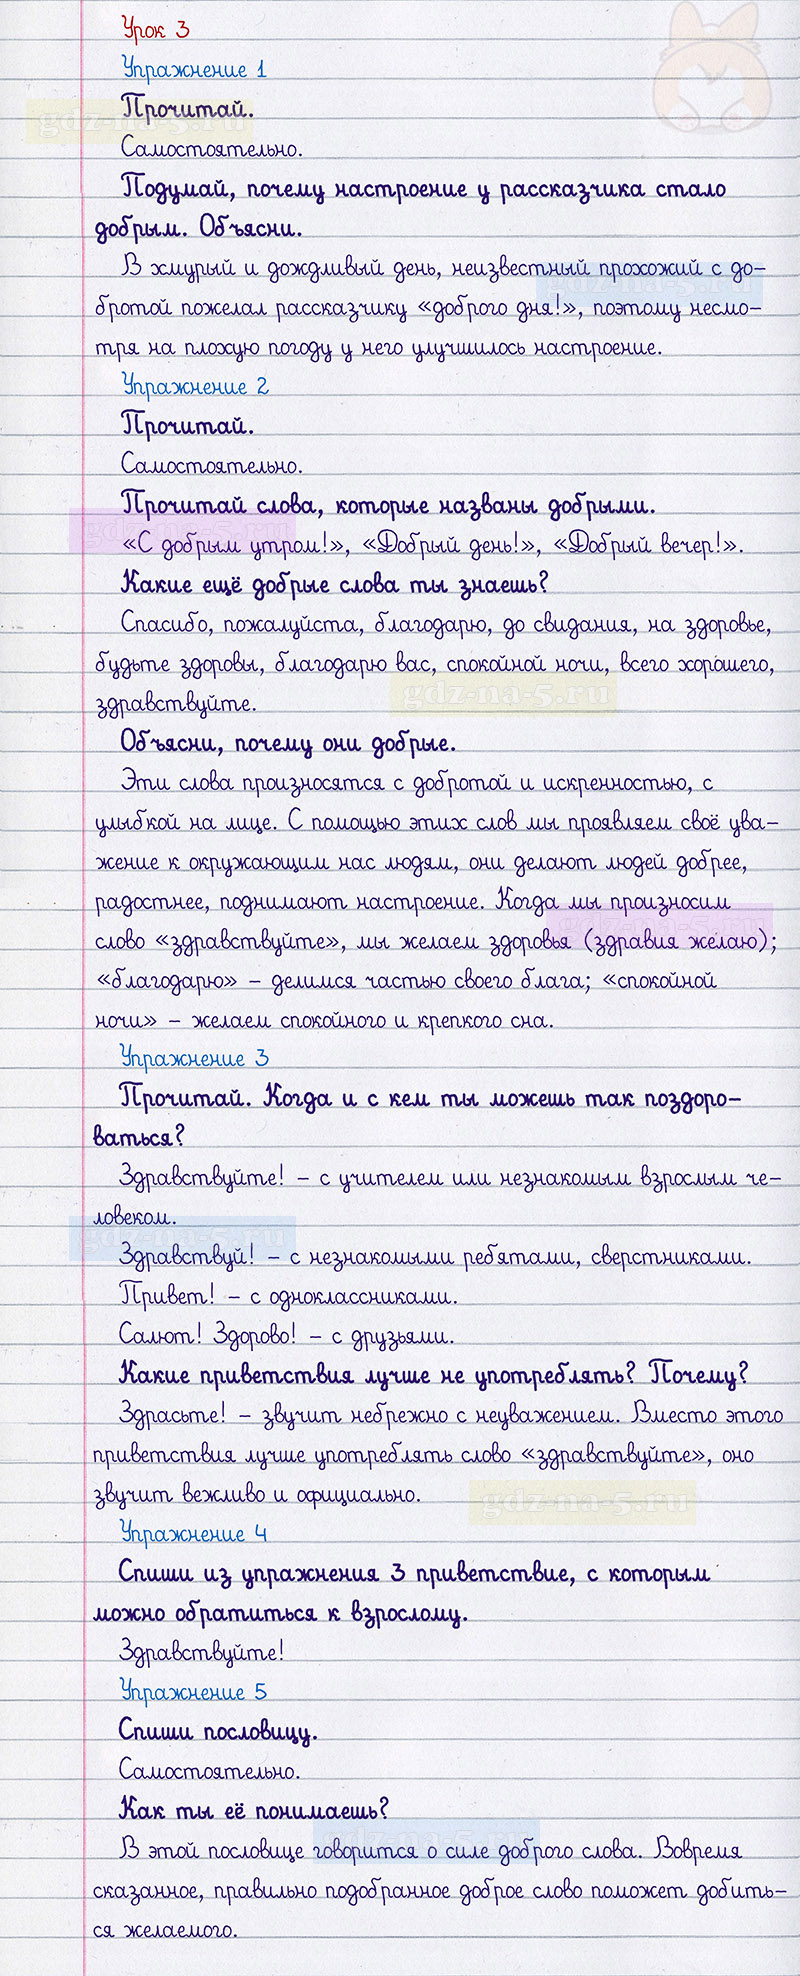 Урок 3
Упражнение 1
Прочитай.
gdz-na-5.ru
Самостоятельно.
Подумай, почему настроение у рассказчика стало
добрым. Объясни.
В хмурый и дождливый день, неизвестный прохожий с до-
gdz-na-5.ru
бротой пожелал рассказчику «доброго дня!», поэтому несмо-
тря на плохую погоду у него улучшилось настроение.
Упражнение 2
Прочитай.
Самостоятельно.
Прочитай слова, которые названы добрыми.
gdz-na-5.ru
«С добрым утром!», «Добрый день!», «Добрый вечер!».
Какие ещё добрые слова ты знаешь?
Спасибо, пожалуйста, благодарю, до свидания, на здоровье,
будьте здоровы, благодарю вас, спокойной ночи, всего хорошего,
gdz-na-5.ru
здравствуйте.
Объясни, почему они добрые.
Эти слова произносятся с добротой и искренностью, с
улыбкой на лице. С помощью этих слов мы проявляем своё ува-
жение к окружающим нас людям, они делают людей добрее,
радостнее, поднимают настроение. Когда мы произносим
gdz-na-5.ru
слово «здравствуйте», мы желаем здоровья (здравия желаю);
«благодарю» – делимся частью своего блага; «спокойной
ночи» – желаем спокойного и крепкого сна.
Упражнение 3
Прочитай. Когда и с кем ты можешь так поздоро-
ваться?
Здравствуйте! – с учителем или незнакомым взрослым че-
ловеком.
gdz-na-5.ru
Здравствуй! – с незнакомыми ребятами, сверстниками.
Привет! – с одноклассниками.
Салют! Здорово! – с друзьями.
Какие приветствия лучше не употреблять? Почему?
Здрасьте! – звучит небрежно с неуважением. Вместо этого
приветствия лучше употреблять слово «здравствуйте», оно
звучит вежливо и официально.
gdz-na-5.ru
Упражнение 4
Спиши из упражнения 3 приветствие, с которым
можно обратиться к взрослому.
Здравствуйте!
Упражнение 5
Спиши пословицу.
Самостоятельно.
Как ты её понимаешь?
gdz-na-5.ru
В этой пословице говорится о силе доброго слова. Вовремя
сказанное, правильно подобранное доброе слово поможет добить-
ся желаемого.